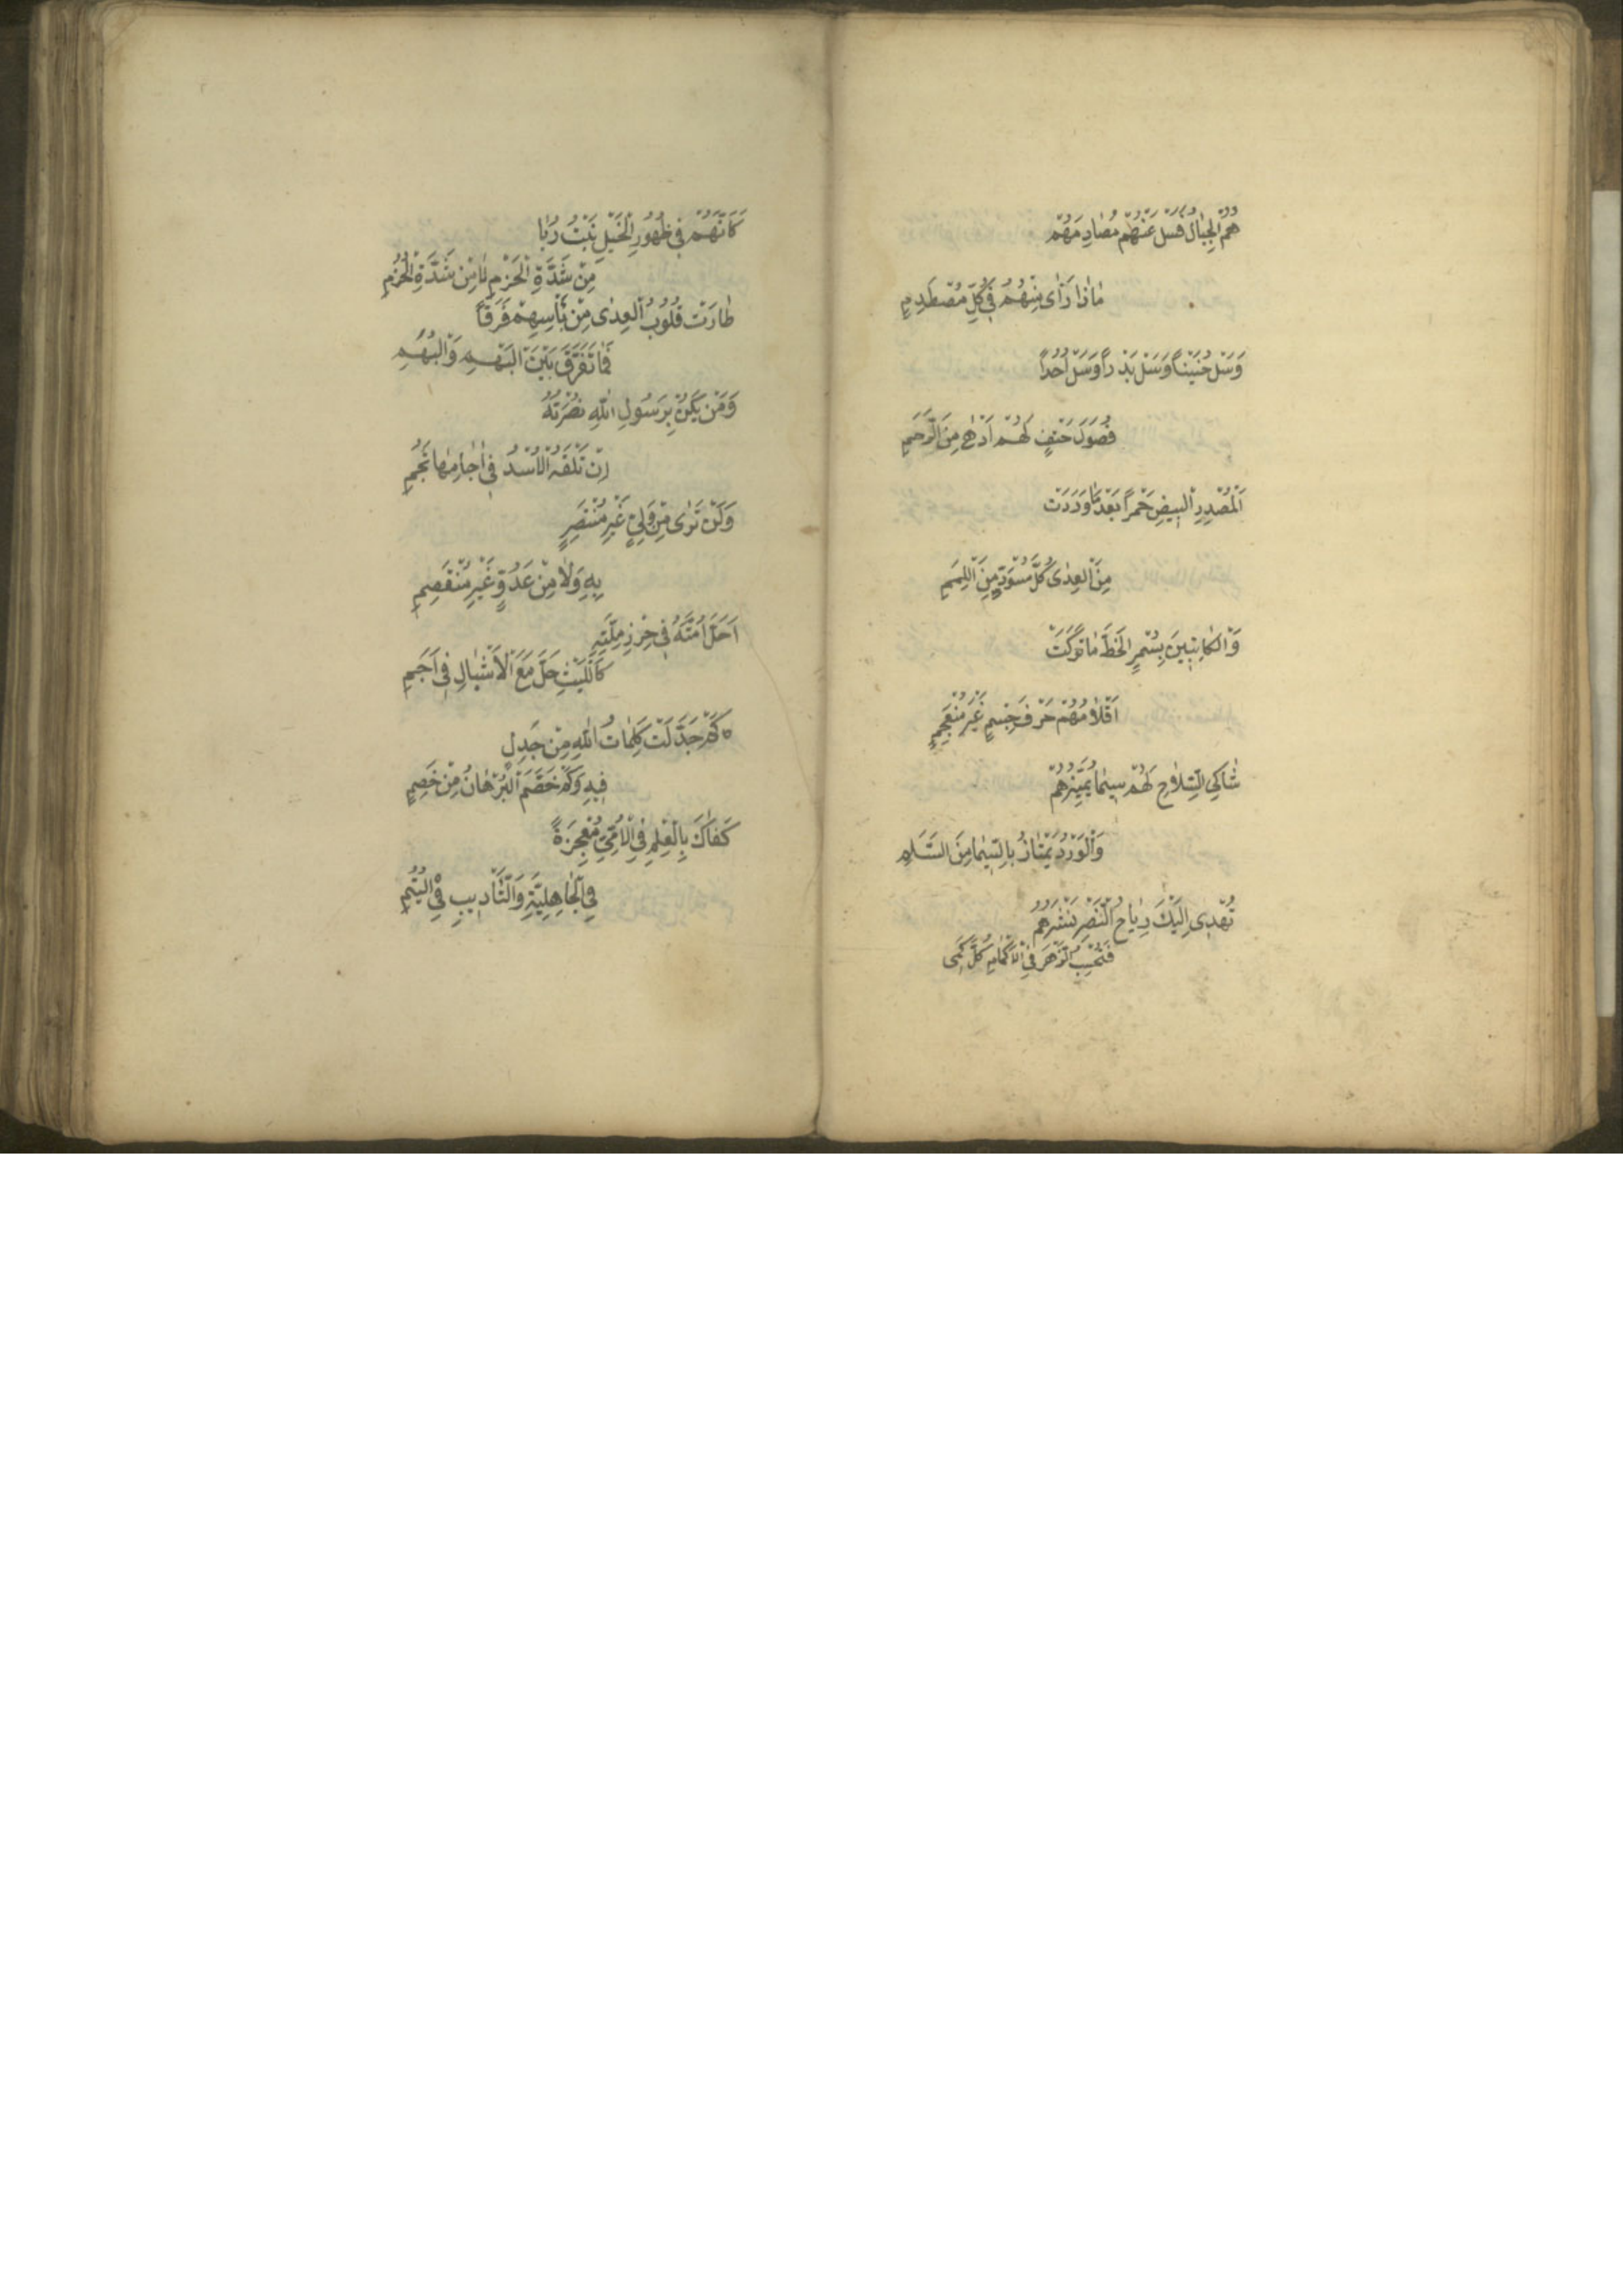 هُمُ الْجِبَالُ فَسَلْ عَنْهُمْ مُصَادِمَهُمْ
مَاذَا رَاٰى مِنْهُمُ فِي كُلِّ مُصْطَدِمٍ
وَسَلْ حُنَيْناً وَسَلْ بَدْراً وَسَلْ اُحُداً
فُصُولَ حَتْفٍ لَهُمْ اَدْهٰى مِنَ الْوَخَمِ
اَلْمُصْدِرِ الْبِيضِ حُمْراً بَعْدَ مَا وَرَدَتْ
مِنَ الْعِدٰى كُلَّ مُسْوَدٍّ مِنَ اللِّمَمِ
وَالْكَاتِبِينَ بِسُمْرِ الْخَطِّ مَا تَرَكَتْ
اَقْلَامُهُمْ حَرْفَ جِسْمٍ غَيْرَ مُنْعَجِمٍ
شَاكِي السِّلَاحِ لَهُمْ سِيمَا تُمَيِّزُهُمْ
وَالْوَرْدُ يَمْتَازُ بِالسِّيمَا مِنَ السَّلَمِ
تُهْدِى اِلَيْكَ رِيَاحُ النَّصْرِ نَشْرَهُمُ
فَتَحْسِبُ الزَّهْرَ فِي الْاَكْمَامِ كُلَّ كَمِى
كَاَنَّهُمْ فِي ظُهُورِ الْخَيْلِ نَبْتُ رُبًا
مِنْ شَدَّةِ الْحَزْمِ لَا مِنْ شَدَّةِ الْحُزُمِ
طَارَتْ قُلُوبُ الْعِدٰى مِنْ بَاْسِهِمْ فَرَقًا
فَمَا تُفَرِّقُ بَيْنَ الْبَهْمِ وَالْبُهَمِ
وَمَنْ يَكُنْ بِرَسُولِ اللّٰهِ نُصْرَتُهُ
اِنْ تَلْقَهُ الْاُسْدُ فِي اٰجَامِهَا تَجِمِ
وَلَنْ تَرٰى مِنْ وَلِيٍّ غَيْرِ مُنْتَصِرٍ
بِهِ وَلَا مِنْ عَدُوٍّ غَيْرِ مُنْقَصِمِ
اَحَلَّ اُمَّتَهُ فِي حِرْزِ مِلَّتِهِ
كَاللَّيْثِ حَلَّ مَعَ الْاَشْبَالِ فِي اَجَمِ
كَمْ جَدَّلَتْ كَلِمَاتُ اللّٰهِ مِنْ جَدِلٍ
فِيهِ وَكَمْ خَصَّمَ الْبُرْهَانُ مِنْ خَصِمِ
كَفَاكَ بِالْعِلْمِ فِي الْاُمِّيِّ مُعْجِزَةً
فِي الْجَاهِلِيَّةِ وَالتَّاْدِيبِ فِي الْيُتُمِ